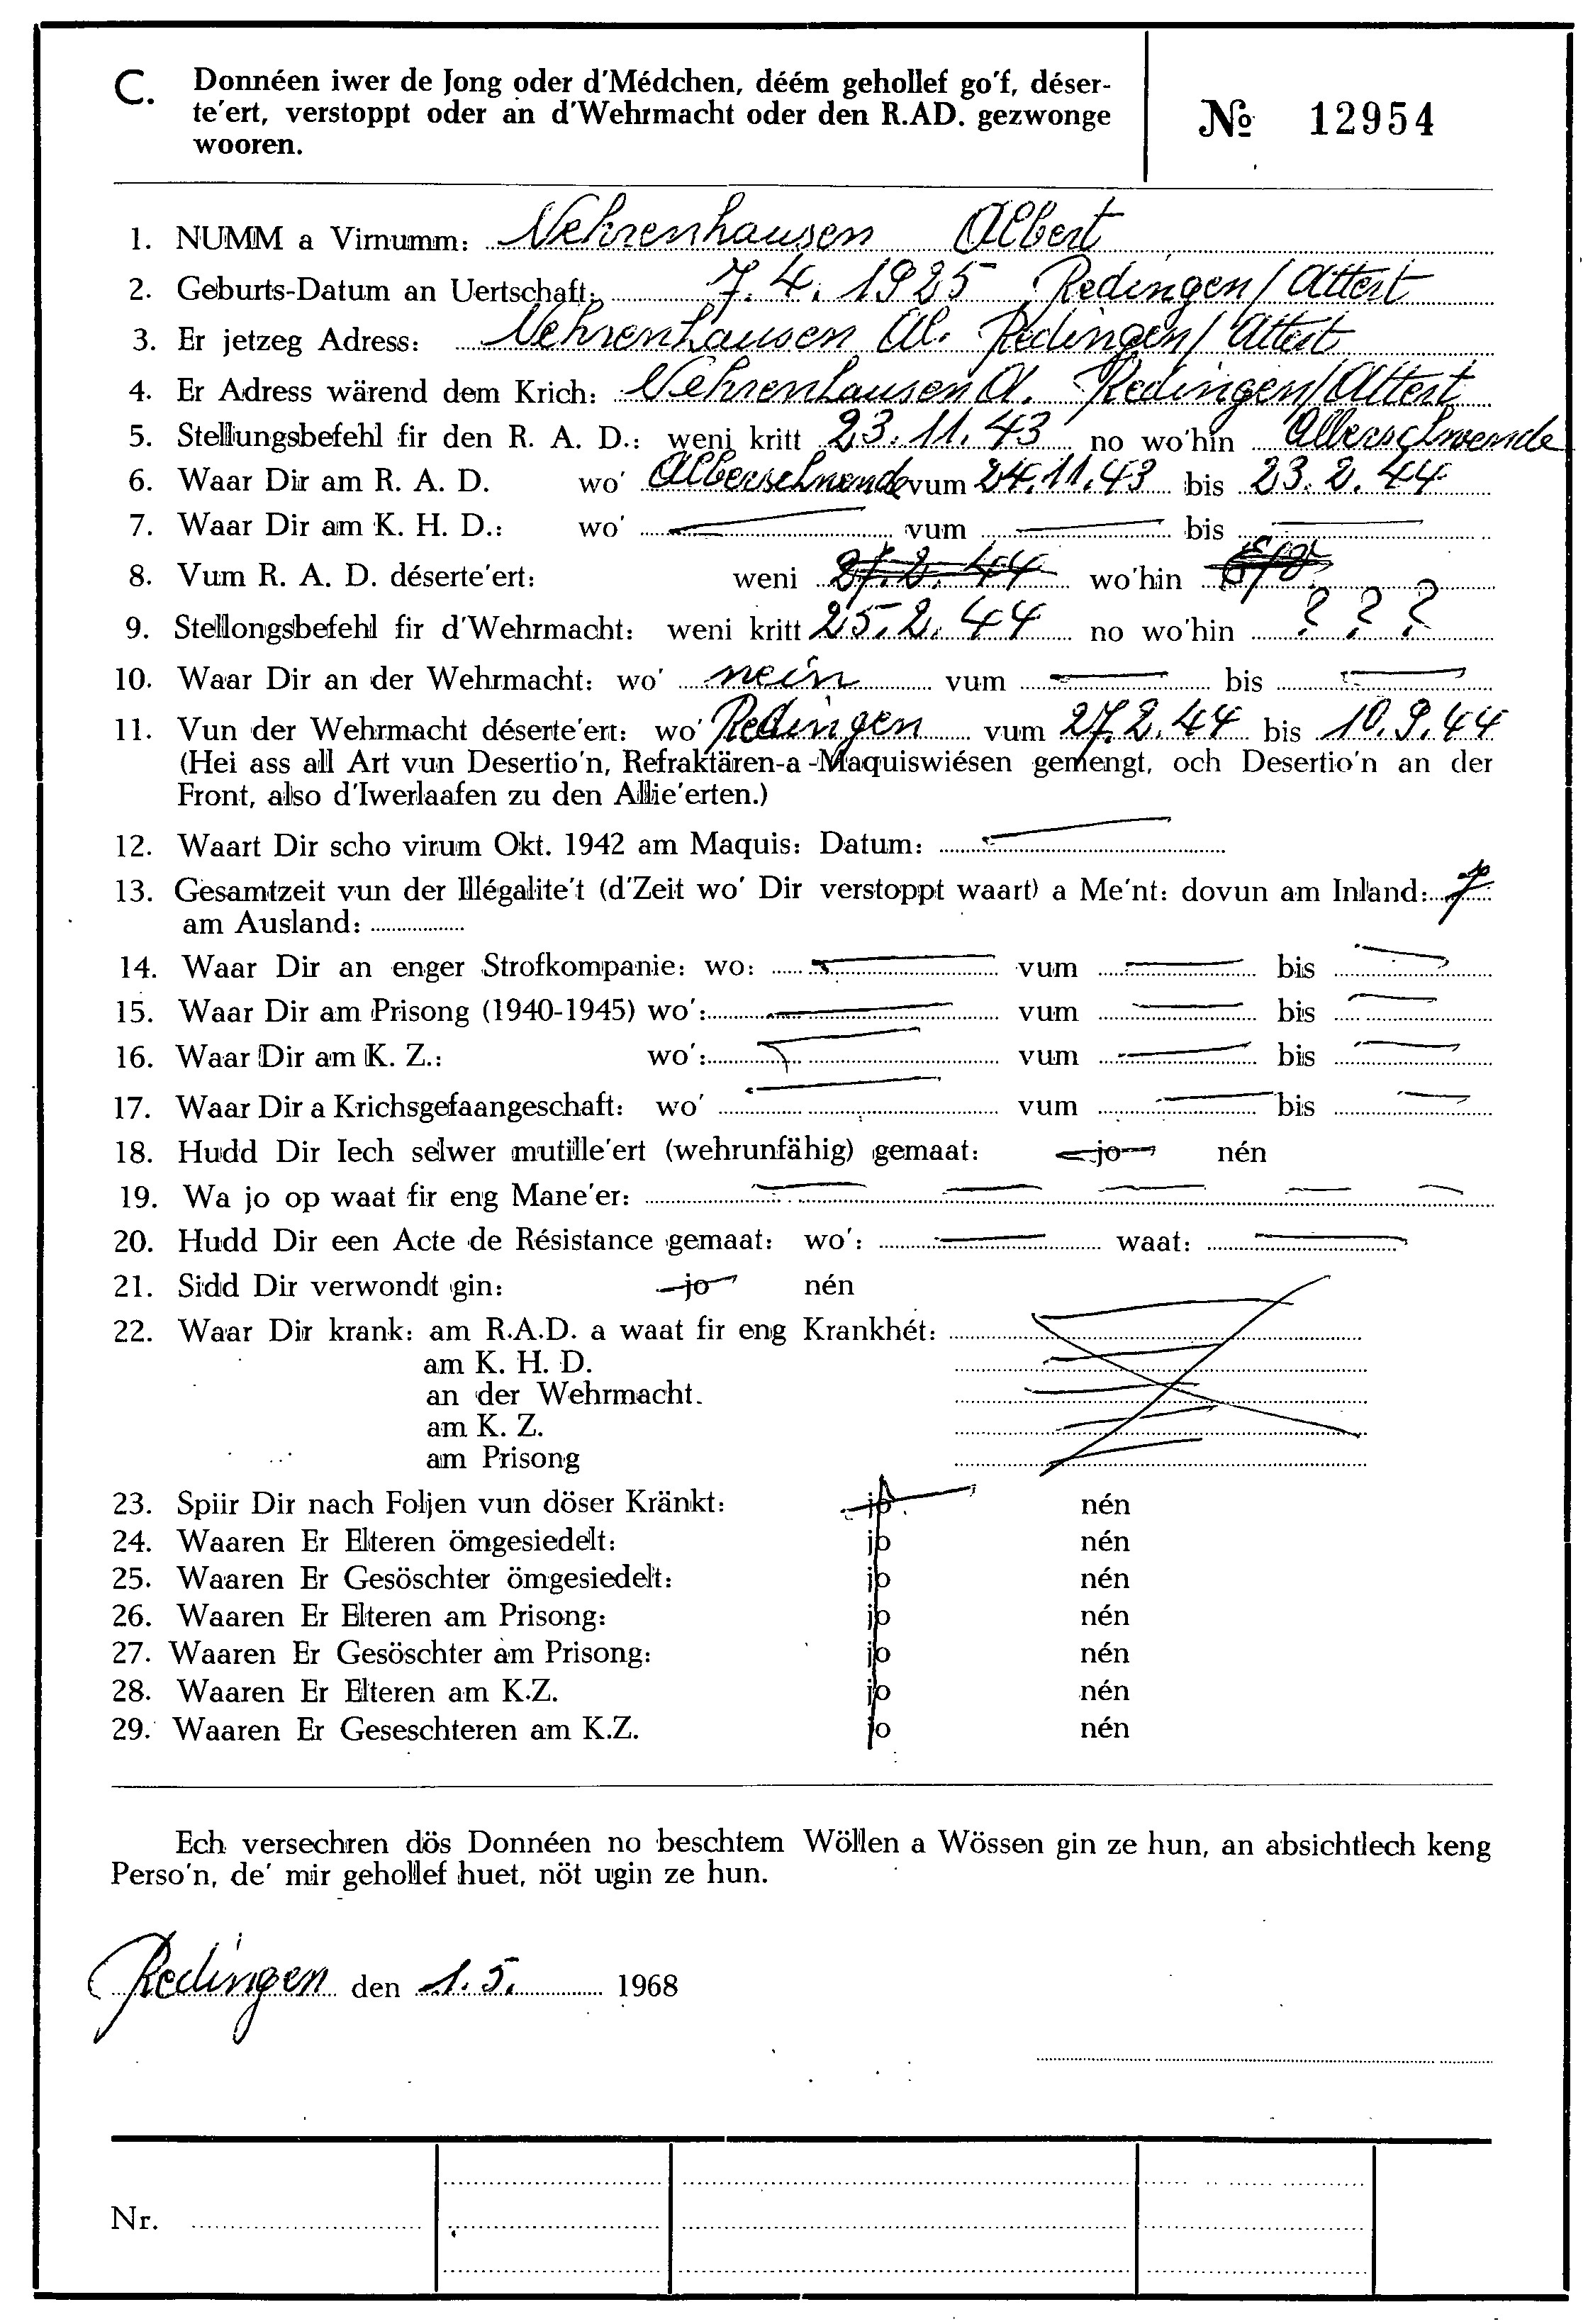 C. Donnéen iwer de Jong oder d'Médchen, déém gehollef go'f, déser-
te'ert, verstoppt oder an d'Wehrmacht oder den R.AD. gezwonge
wooren.
№ 12954
1. NUMM a Virnumm: Nehrenhausen Albert
2. Geburts-Datum an Uertschaft: 7.4.1925 Redingen/Attert
3. Er jetzeg Adress: Nehrenhausen Al. Redingen/Attert
4. Er Adress wärend dem Krich: Nehrenhausen A. Redingen/Attert
5. Stellungsbefehl fir den R. A. D.: weni kritt 23.11.43 no wo'hin Alberschwende
6. Waar Dir am R. A. D. wo' Alberschwende vum 24.11.43 bis 23.2.44
7. Waar Dir am K. H. D.: wo' vum bis
8. Vum R. A. D. déserte'ert: weni 27.2.44 wo'hin
9. Stellongsbefehl fir d'Wehrmacht: weni kritt 25.2.44 no wo'hin ? ? ?
10. Waar Dir an der Wehrmacht: wo' nein vum bis
11. Vun der Wehrmacht déserte'ert: wo' Redingen vum 27.2.44 bis 10.9.44
(Hei ass all Art vun Desertio'n, Refraktären-a-Maquiswiésen gemengt, och Desertio'n an der
Front, also d'Iwerlaafen zu den Allie'erten.)
12. Waart Dir scho virum Okt. 1942 am Maquis: Datum:
13. Gesamtzeit vun der Illégalite't (d'Zeit wo' Dir verstoppt waart) a Me'nt: dovun am Inland: 7
am Ausland:
14. Waar Dir an enger Strofkompanie: wo: vum bis
15. Waar Dir am Prisong (1940-1945) wo': vum bis
16. Waar Dir am K. Z.: wo': vum bis
17. Waar Dir a Krichsgefaangeschaft: wo' vum bis
18. Hudd Dir Iech selwer mutille'ert (wehrunfähig) gemaat: jo nén
19. Wa jo op waat fir eng Mane'er:
20. Hudd Dir een Acte de Résistance gemaat: wo': waat:
21. Sidd Dir verwondt gin: jo nén
22. Waar Dir krank: am R.A.D. a waat fir eng Krankhét:
am K. H. D.
an der Wehrmacht.
am K. Z.
am Prisong
23. Spiir Dir nach Foljen vun döser Kränkt: jo nén
24. Waaren Er Elteren ömgesiedelt: jo nén
25. Waaren Er Gesöschter ömgesiedelt: jo nén
26. Waaren Er Elteren am Prisong: jo nén
27. Waaren Er Gesöschter am Prisong: jo nén
28. Waaren Er Elteren am K.Z. jo nén
29. Waaren Er Geseschteren am K.Z. jo nén
Ech versechren dös Donnéen no beschtem Wöllen a Wössen gin ze hun, an absichtlech keng
Perso'n, de' mir gehollef huet, nöt ugin ze hun.
Redingen den 1.5. 1968
Nr.